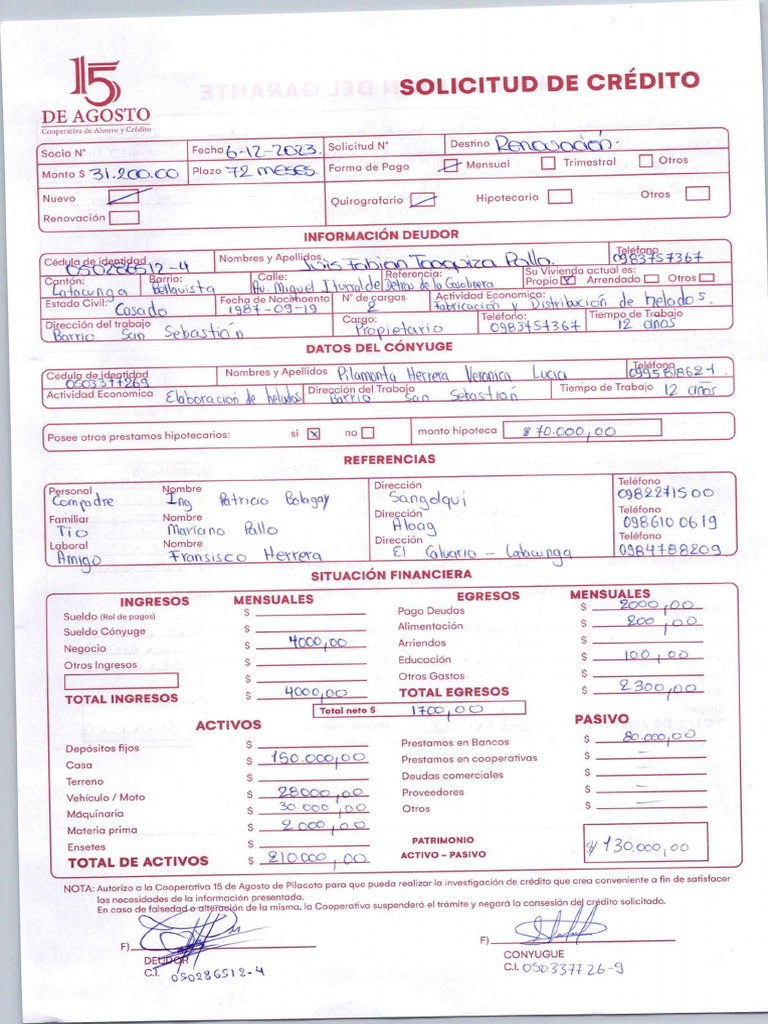 15
DE AGOSTO
Cooperativa de Ahorro y Crédito
SOLICITUD DE CRÉDITO
Socio N° Fecha 6-12-2023. Solicitud N° Destino Renovación.
Monto $ 31.200.00 Plazo 72 meses. Forma de Pago Mensual Trimestral Otros
Nuevo Quirografario Hipotecario Otros
Renovación
INFORMACIÓN DEUDOR
Cédula de identidad 050286512-4 Nombres y Apellidos Luis Fabian Toapiza Pallo. Teléfono 0983757367
Cantón: Latacunga Barrio: Bellavista Calle: Av. Miguel Iturralde Referencia: Detras de la Gasolinera Su Vivienda actual es: Propia x Arrendada Otros
Estado Civil: Casado Fecha de Nacimoento 1987-09-19 N° de cargas 2 Actividad Economica: Fabricación y Distribución de helados.
Dirección del trabajo Barrio San Sebastián Cargo: Propietario Teléfono: 0983757367 Tiempo de Trabajo 12 años
DATOS DEL CÓNYUGE
Cédula de identidad 0503377269 Nombres y Apellidos Pilamonta Herrera Veronica Lucia Teléfono 0995818621
Actividad Economica Elaboración de helados Dirección del Trabajo Barrio San Sebastián Tiempo de Trabajo 12 años
Posee otros prestamos hipotecarios: si x no monto hipoteca $ 70.000,00
REFERENCIAS
Personal Nombre Dirección Teléfono
Compadre Ing Patricio Bolagay Sangolqui 0982271500
Familiar Nombre Dirección Teléfono
Tio Mariano Pallo Aloag 098610 0619
Laboral Nombre Dirección Teléfono
Amigo Fransisco Herrera El Calvario - Latacunga 0984788209
SITUACIÓN FINANCIERA
INGRESOS MENSUALES EGRESOS MENSUALES
Sueldo (Rol de pagos) $ Pago Deudas $ 2000,00
Sueldo Cónyuge $ Alimentación $ 200,00
Negocio $ 4000,00 Arriendos $
Otros Ingresos $ Educación $ 100,00
Otros Gastos $
TOTAL INGRESOS $ 4000,00 TOTAL EGRESOS $ 2300,00
Total neto $ 1700,00
ACTIVOS PASIVO
Depósitos fijos $ Prestamos en Bancos $ 80.000,00
Casa $ 150.000,00 Prestamos en cooperativas $ —
Terreno $ Deudas comerciales $ —
Vehículo / Moto $ 28000,00 Proveedores $ —
Máquinaria $ 30.000,00 Otros $ —
Materia prima $ 2000,00
Ensetes $ PATRIMONIO
TOTAL DE ACTIVOS $ 210000,00 ACTIVO - PASIVO $ 130.000,00
NOTA: Autorizo a la Cooperativa 15 de Agosto de Pilacoto para que pueda realizar la investigación de crédito que crea conveniente a fin de satisfacer
las necesidades de la información presentada.
En caso de falsedad o alteración de la misma, la Cooperativa suspenderá el trámite y negará la consesión del crédito solicitado.
F) F)
DEUDOR CONYUGUE
C.I. 050286512-4 C.I. 050337726-9